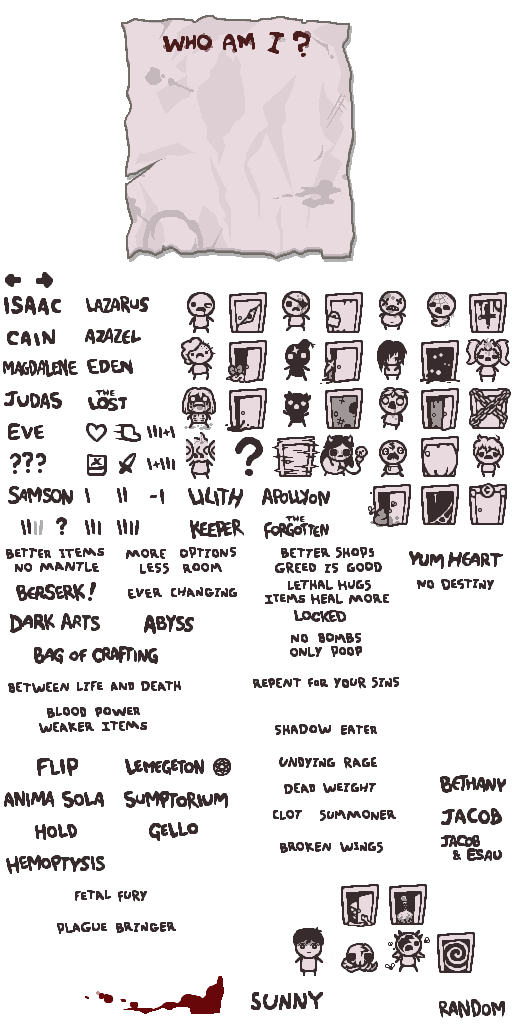 WHO AM I?
ISAAC LAZARUS
CAIN AZAZEL
MAGDALENE EDEN
JUDAS THE LOST
EVE
???
?
SAMSON LILITH APOLLYON
? KEEPER THE FORGOTTEN
BETTER ITEMS
NO MANTLE
MORE OPTIONS
LESS ROOM
BETTER SHOPS
GREED IS GOOD
YUM HEART
BERSERK!
EVER CHANGING
LETHAL HUGS
ITEMS HEAL MORE
NO DESTINY
DARK ARTS
ABYSS
LOCKED
NO BOMBS
ONLY POOP
BAG OF CRAFTING
BETWEEN LIFE AND DEATH
REPENT FOR YOUR SINS
BLOOD POWER
WEAKER ITEMS
SHADOW EATER
FLIP
LEMEGETON
UNDYING RAGE
ANIMA SOLA
SUMPTORIUM
DEAD WEIGHT
BETHANY
HOLD
GELLO
CLOT SUMMONER
JACOB
HEMOPTYSIS
BROKEN WINGS
JACOB
& ESAU
FETAL FURY
PLAGUE BRINGER
SUNNY
RANDOM